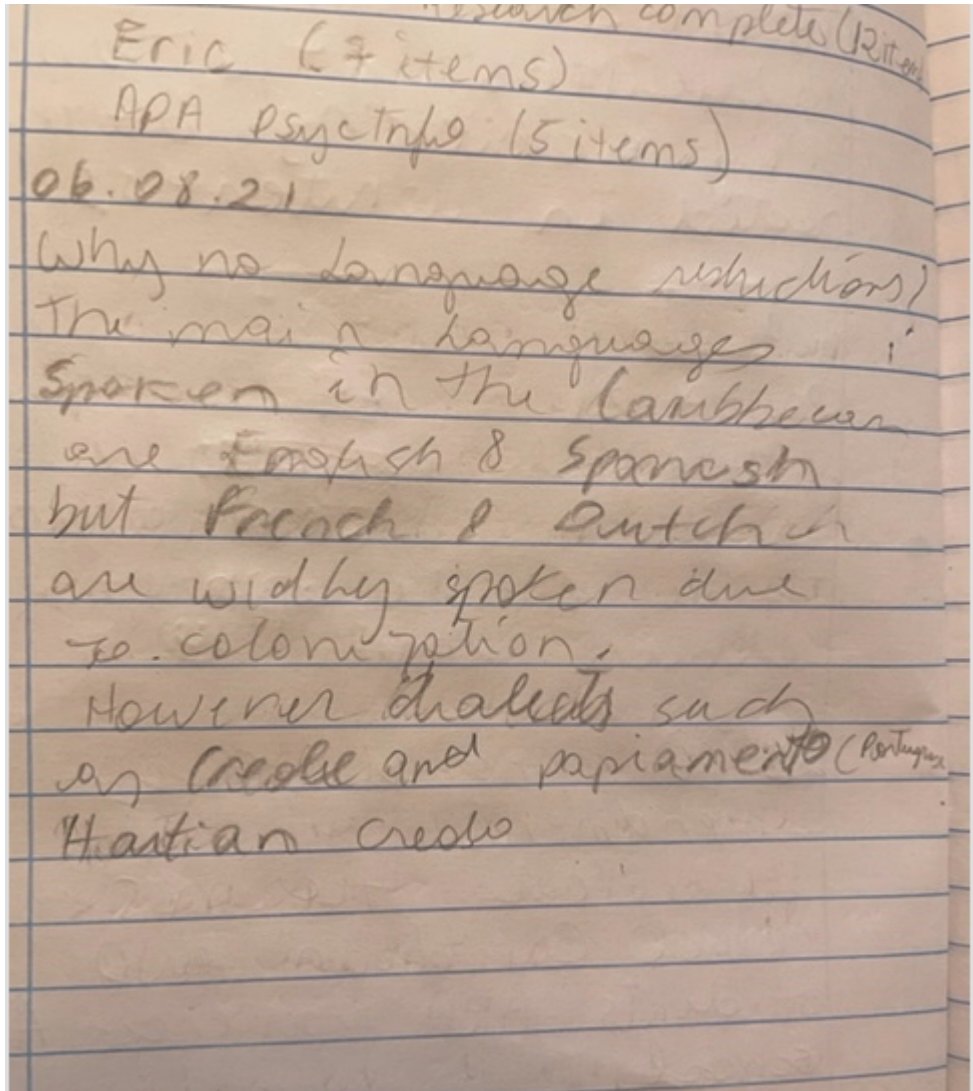 Research complete (12 items
Eric (7 items)
APA PsycInfo (5 items)
06.08.21
Why no Language restrictions?
The main Languages
Spoken in the Caribbean
are English & Spanish
but French & Dutch
are widley spoken due
to colonization.
However dialects such
as Creole and papiamento (Portugues
Haitian Credo